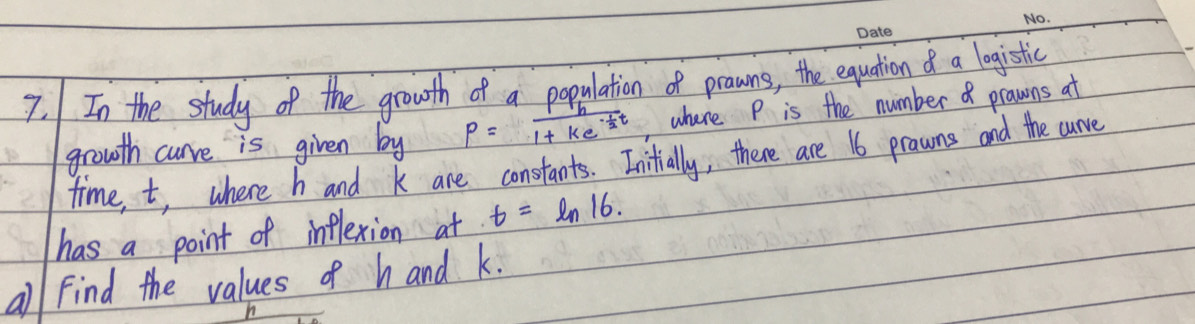 No.
Date
7. In the study of the growth of a population of prawns, the equation of a logistic
growth curve is given by P = h / (1 + ke^(-½t)), where P is the number of prawns at
time, t, where h and k are constants. Initially, there are 16 prawns and the curve
has a point of inflexion at t = ln 16.
a) Find the values of h and k.
h